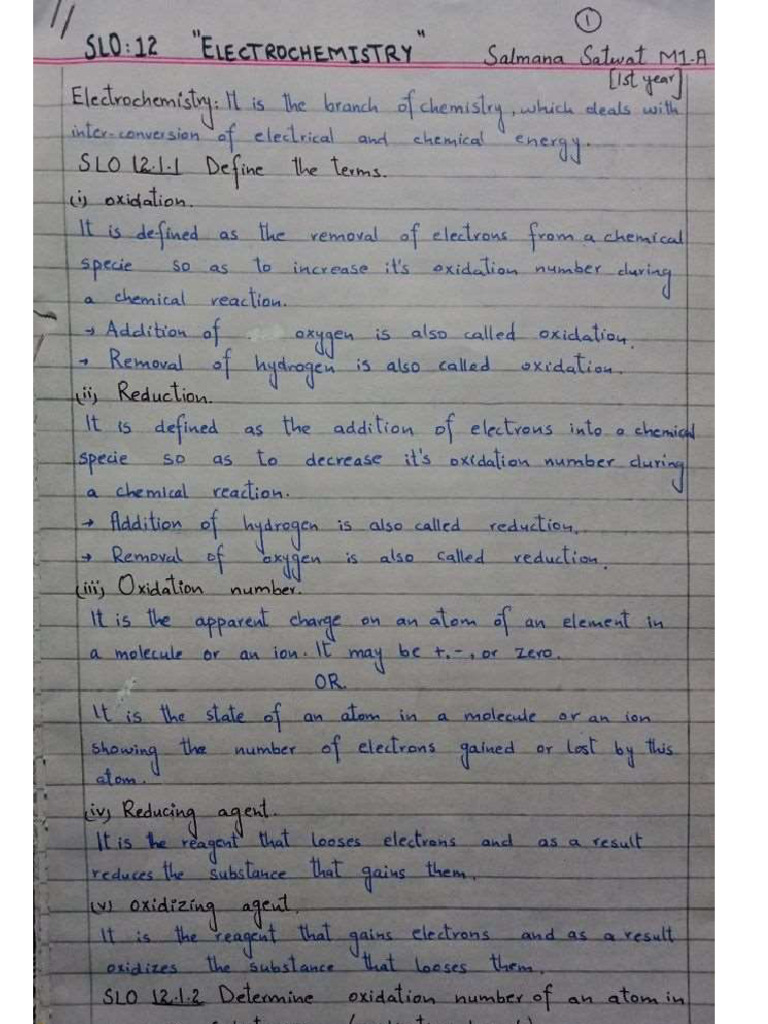 ①
SLO:12 "ELECTROCHEMISTRY" Salmana Satwat M1-A
[1st year]
Electrochemistry: It is the branch of chemistry, which deals with
inter-conversion of electrical and chemical energy.
SLO 12.1.1 Define the terms.
(i) oxidation.
It is defined as the removal of electrons from a chemical
specie so as to increase it's oxidation number during
a chemical reaction.
→ Addition of oxygen is also called oxidation.
→ Removal of hydrogen is also called oxidation.
(ii) Reduction.
It is defined as the addition of electrons into a chemical
specie so as to decrease it's oxidation number during
a chemical reaction.
→ Addition of hydrogen is also called reduction.
→ Removal of oxygen is also called reduction.
(iii) Oxidation number.
It is the apparent charge on an atom of an element in
a molecule or an ion. It may be +, -, or zero.
OR.
It is the state of an atom in a molecule or an ion
showing the number of electrons gained or lost by this
atom.
(iv) Reducing agent.
It is the reagent that looses electrons and as a result
reduces the substance that gains them.
(v) oxidizing agent.
It is the reagent that gains electrons and as a result
oxidizes the substance that looses them.
SLO 12.1.2 Determine oxidation number of an atom in